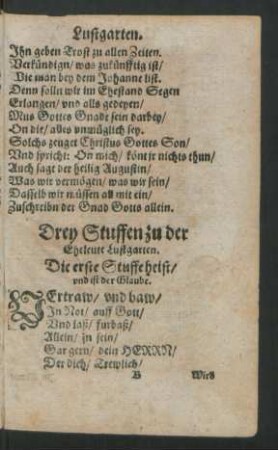 Lustgarten.
Ihn geben Trost zu allen Zeiten.
Verkündign/ was zukünfftig ist/
Wie man bey dem Johanne list.
Denn solln wir im Ehestand Segen
Erlangen/ vnd alls gedeyen/
Mus Gottes Gnade sein darbey/
On die/ alles vnmüglich sey.
Solchs zeuget Christus Gottes Son/
Vnd spricht: On mich/ könt jr nichts thun/
Auch sagt der heilig Augustin/
Was wir vermögen/ was wir sein/
Dasselb wir müssen all mit ein/
Zuschreibn der Gnad Gotts allein.
Drey Stuffen zu der
Eheleut Lustgarten.
Die erste Stuffe heist/
vnd ist der Glaube.
VErtraw/ vnd baw/
In Not/ auff Gott/
Vnd laß/ fürbaß/
Allein/ jn sein/
Gar gern/ dein HERRN/
Der dich/ Trewlich/
B Wird